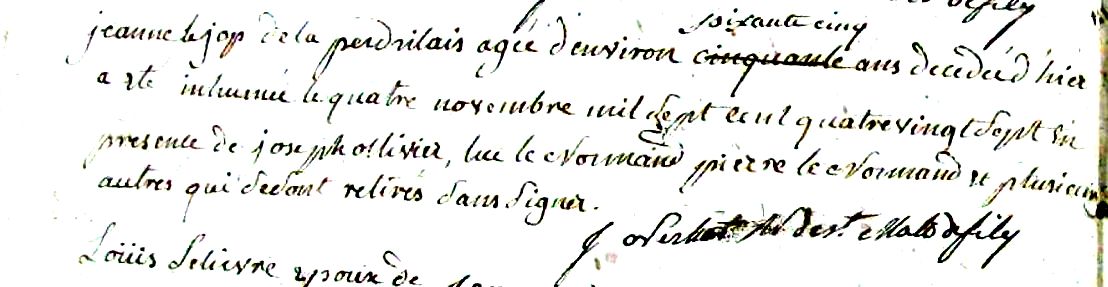 soixante cinq
jeanne lejop de la perdrilais agée d'environ cinquante ans decedée d'hier
a ete inhumée le quatre novembre mil sept cent quatrevingt sept en
presence de joseph ollivier, luc le Normand pierre le Normand et plusieurs
autres qui se sont retirés sans signer.
de st Malo de fily
Loüis Lelievre epoux de